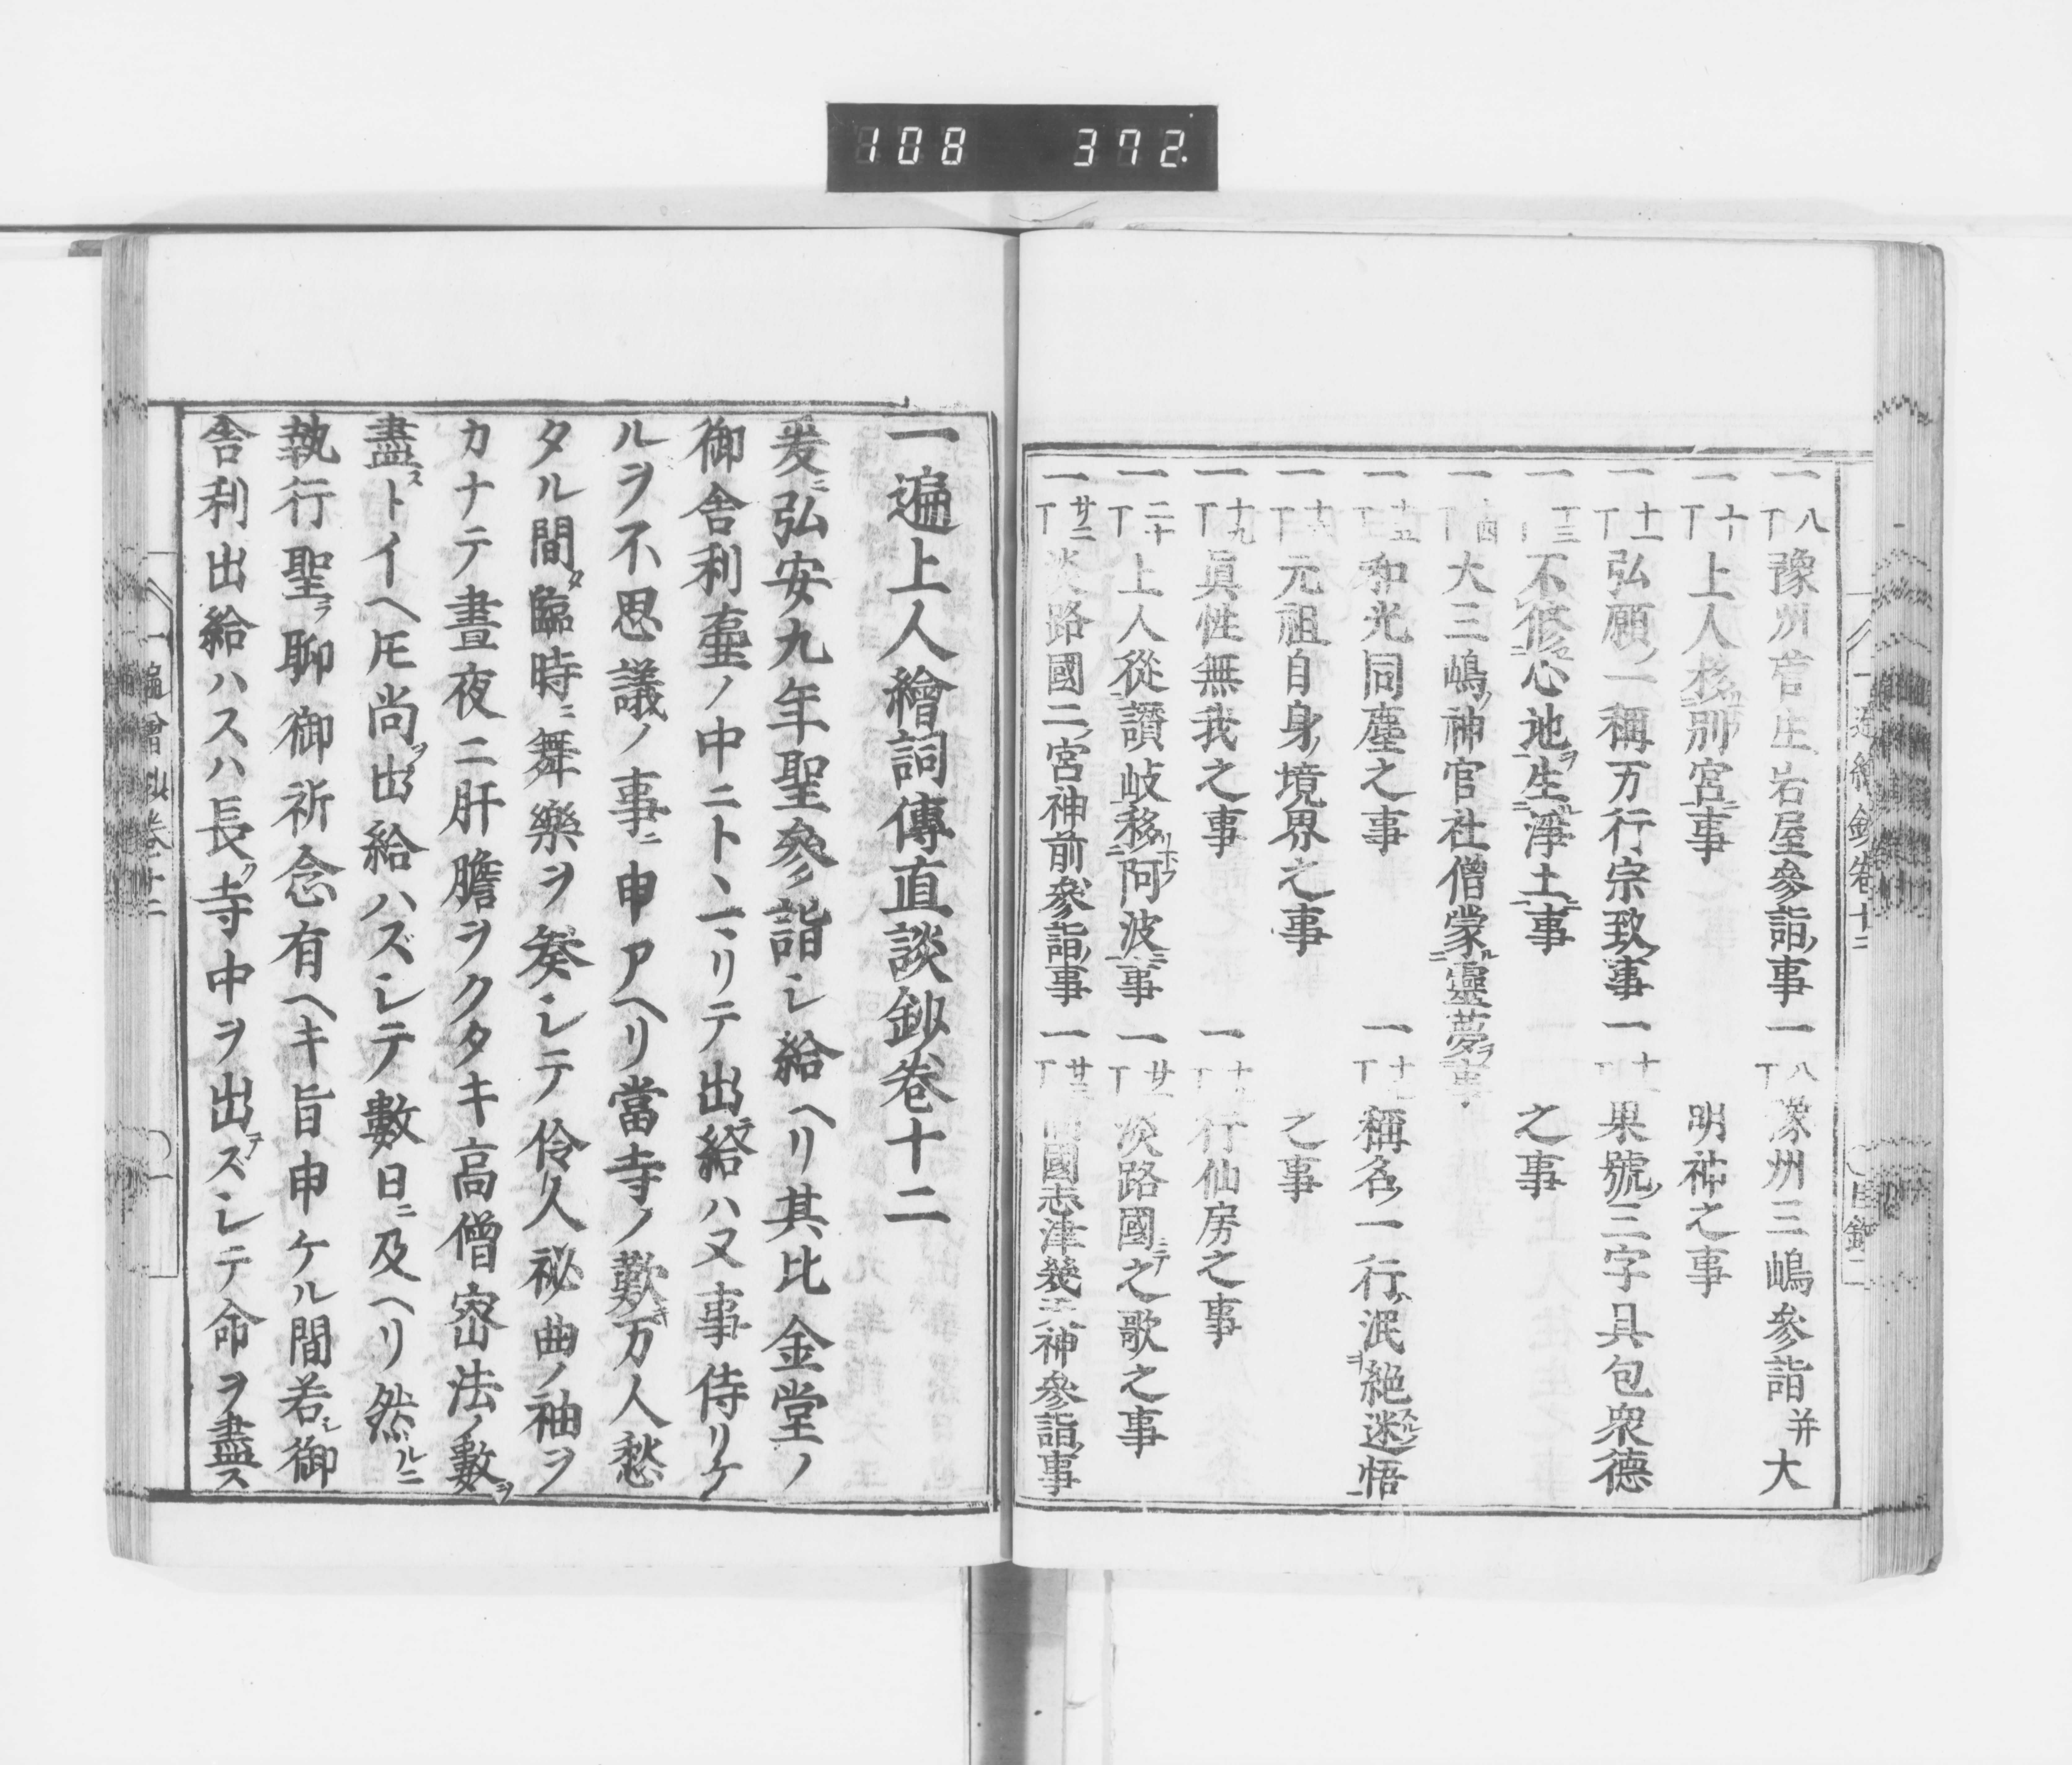 108 372
一 八丁 豫州菅生岩屋參詣事 一 八丁 豫州三嶋參詣并大
一 十丁 上人移別宮事 明神之事
一 十一丁 弘願ノ一稱万行宗致事 一 十一丁 果號ノ三字具包衆德
一 十三丁 不修心地ヲ生淨土事 之事
一 十四丁 大三嶋ノ神官社僧蒙靈夢ヲ事
一 十五丁 和光同塵之事 一 丁 稱名ノ一行泯絶迷悟
一 丁 元祖自身ノ境界之事 之事
一 十九丁 眞性無我之事 一 丁 行仙房之事
一 二十丁 上人從讃岐移阿波事 一 廿一丁 淡路國ニテ之歌之事
一 廿二丁 淡路國二ノ宮神前參詣事 一 丁 國志津幾天神參詣事
一遍上人繪詞傳直談鈔卷十二
爰ニ弘安九年聖參リ詣シ給ヘリ其比金堂ノ
御舍利臺ノ中ニトヽマリテ出給ハヌ事侍リケ
ルヲ不思議ノ事ニ申アヘリ當寺ノ歎キ万人愁
タル間タ臨時ニ舞樂ヲ奏シテ伶人秘曲ノ袖ヲ
カナテ晝夜ニ肝膽ヲクタキ高僧密法ノ數ヲ
盡ストイヘ𪜈尚ヲ出給ハズシテ數日ニ及ヘリ然ルニ
執行聖ヲ聊御祈念有ヘキ旨申ケル間若シ御
舍利出給ハスハ長ク寺中ヲ出テズシテ命ヲ盡ス